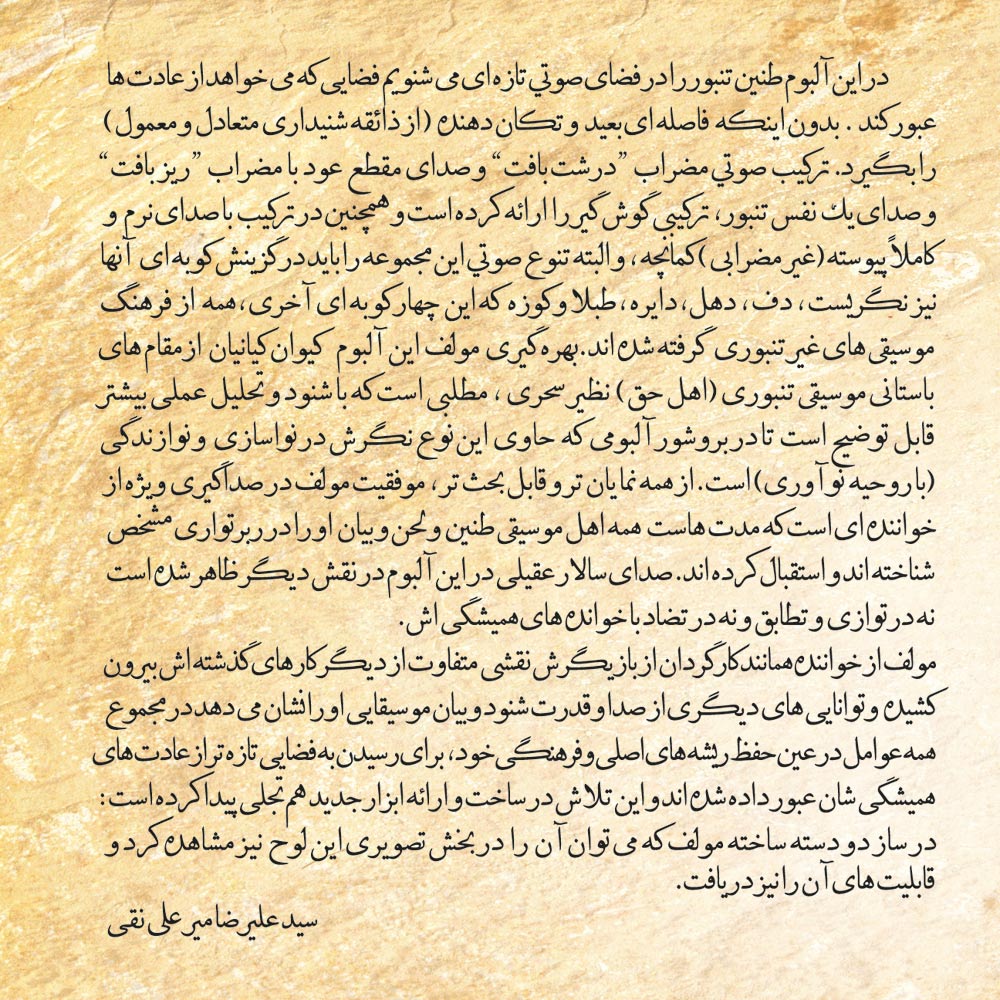 در این آلبوم طنین تنبور را در فضای صوتي تازه ای می شنویم فضایی که می خواهد از عادت ها
عبور کند . بدون اینکه فاصله ای بعید و تکان دهنده (از ذائقه شنیداری متعادل و معمول)
را بگیرد. ترکیب صوتي مضراب ”درشت بافت“ و صدای مقطع عود با مضراب ”ریز بافت“
و صدای یك نفس تنبور، ترکیبي گوش گیر را ارائه کرده است و همچنین در ترکیب با صدای نرم و
کاملاً پیوسته (غیر مضرابی) کمانچه، و البته تنوع صوتي این مجموعه را باید در گزینش کوبه ای آنها
نیز نگریست، دف، دهل، دایره، طبلا و کوزه که این چهار کوبه ای آخری، همه از فرهنگ
موسیقی های غیر تنبوری گرفته شده اند. بهره گیری مولف این آلبوم کیوان کیانیان از مقام های
باستانی موسیقی تنبوری (اهل حق) نظیر سحری ، مطلبی است که با شنود و تحلیل عملی بیشتر
قابل توضیح است تا در بروشور آلبومی که حاوی این نوع نگرش در نواسازی و نوازندگی
(با روحیه نوآوری) است. از همه نمایان تر و قابل بحث تر، موفقیت مولف در صداگیری ویژه از
خواننده ای است که مدت هاست همه اهل موسیقی طنین و لحن و بیان او را در رپرتواری مشخص
شناخته اند و استقبال کرده اند. صدای سالار عقیلی در این آلبوم در نقش دیگر ظاهر شده است
نه در توازی و تطابق و نه در تضاد با خوانده های همیشگی اش.
مولف از خواننده همانند کارگردان از بازیگرش نقشی متفاوت از دیگر کارهای گذشته اش بیرون
کشیده و توانایی های دیگری از صدا و قدرت شنود و بیان موسیقایی او را نشان می دهد در مجموع
همه عوامل در عین حفظ ریشه های اصلی و فرهنگی خود، برای رسیدن به فضایی تازه تر از عادت های
همیشگی شان عبور داده شده اند و این تلاش در ساخت و ارائه ابزار جدید هم تجلی پیدا کرده است:
در ساز دو دسته ساخته مولف که می توان آن را در بخش تصویری این لوح نیز مشاهده کرد و
قابلیت های آن را نیز دریافت.
سید علیرضا میر علی نقی